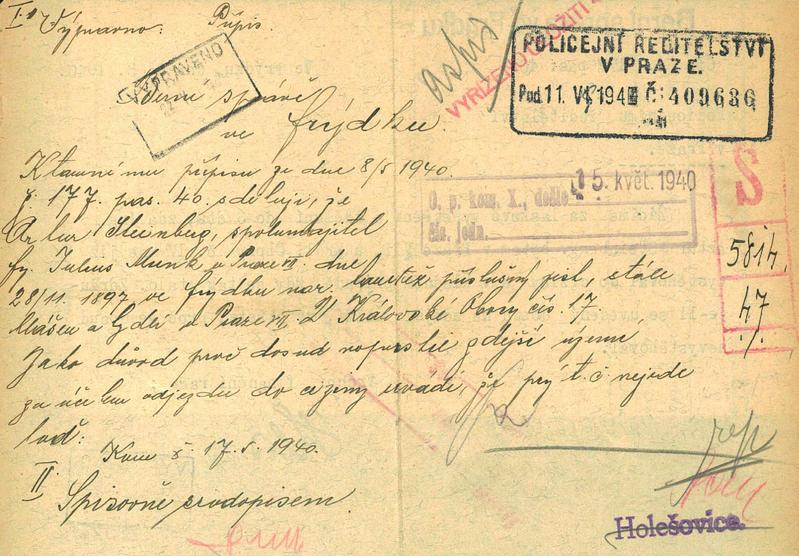 I. Výpravno: Přípis.
aspis
VYPRAVENO
POLICEJNÍ ŘEDITELSTVÍ
V PRAZE.
Pod. 11. VI. 194 Č: 409636
správě
ve Frýdku.
K tamnímu přípisu ze dne 8/5 1940.
č. 177. pas. 40. sděluji, že
O. p. kom. X., došlo 15. květ. 1940
čís. jedn.
S
5814
47
Artur Steinberg, spolumajitel
fy. Julius Munk v Praze VII. dne
28/11. 1897 ve Frýdku nar. tamtéž příslušný jest, stále
hlášen a bydlí v Praze VII. U Královské Obory čís. 17.
Jako důvod proč dosud neopustil zdejší území
za účelem odjezdu do ciziny uvádí, že prý t. č. nejede
loď.
17. 5. 1940.
II
Spisovně s rodopisem.
Holešovice.